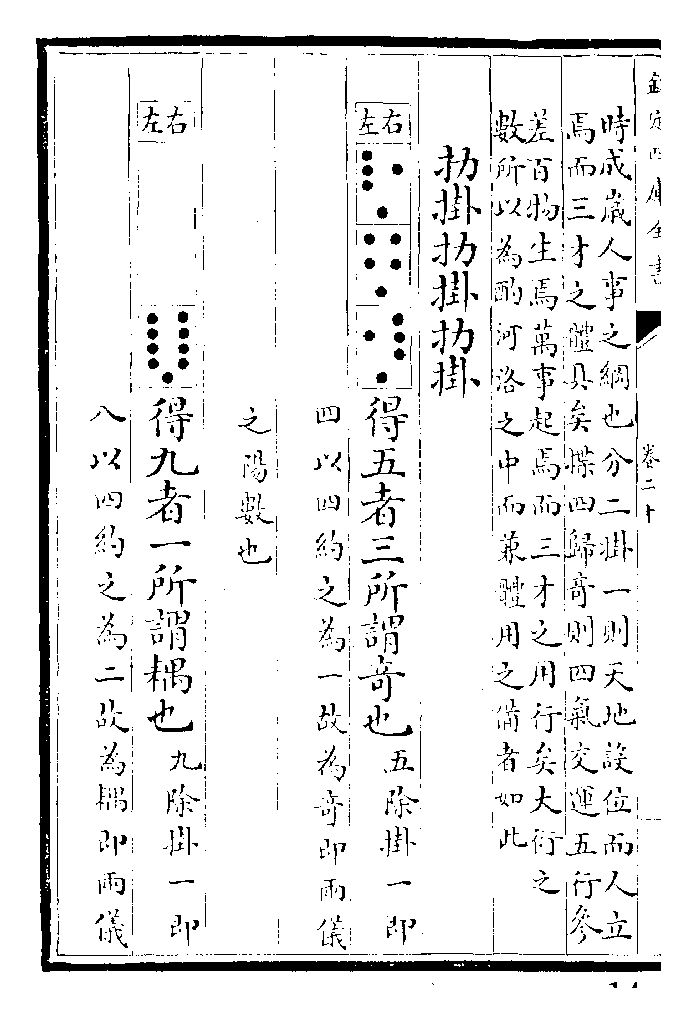 欽定四庫全書
卷二十
時成歲人事之綱也分二掛一則天地設位而人立
焉而三才之體具矣揲四歸奇則四氣交運五行參
差百物生焉萬事起焉而三才之用行矣大衍之
數所以為酌河洛之中而兼體用之備者如此
扐掛扐掛扐掛
右
左
得五者三所謂奇也五除掛一即
四以四約之為一故為奇即兩儀
之陽數也
右
左
得九者一所謂耦也九除掛一即
八以四約之為二故為耦即兩儀